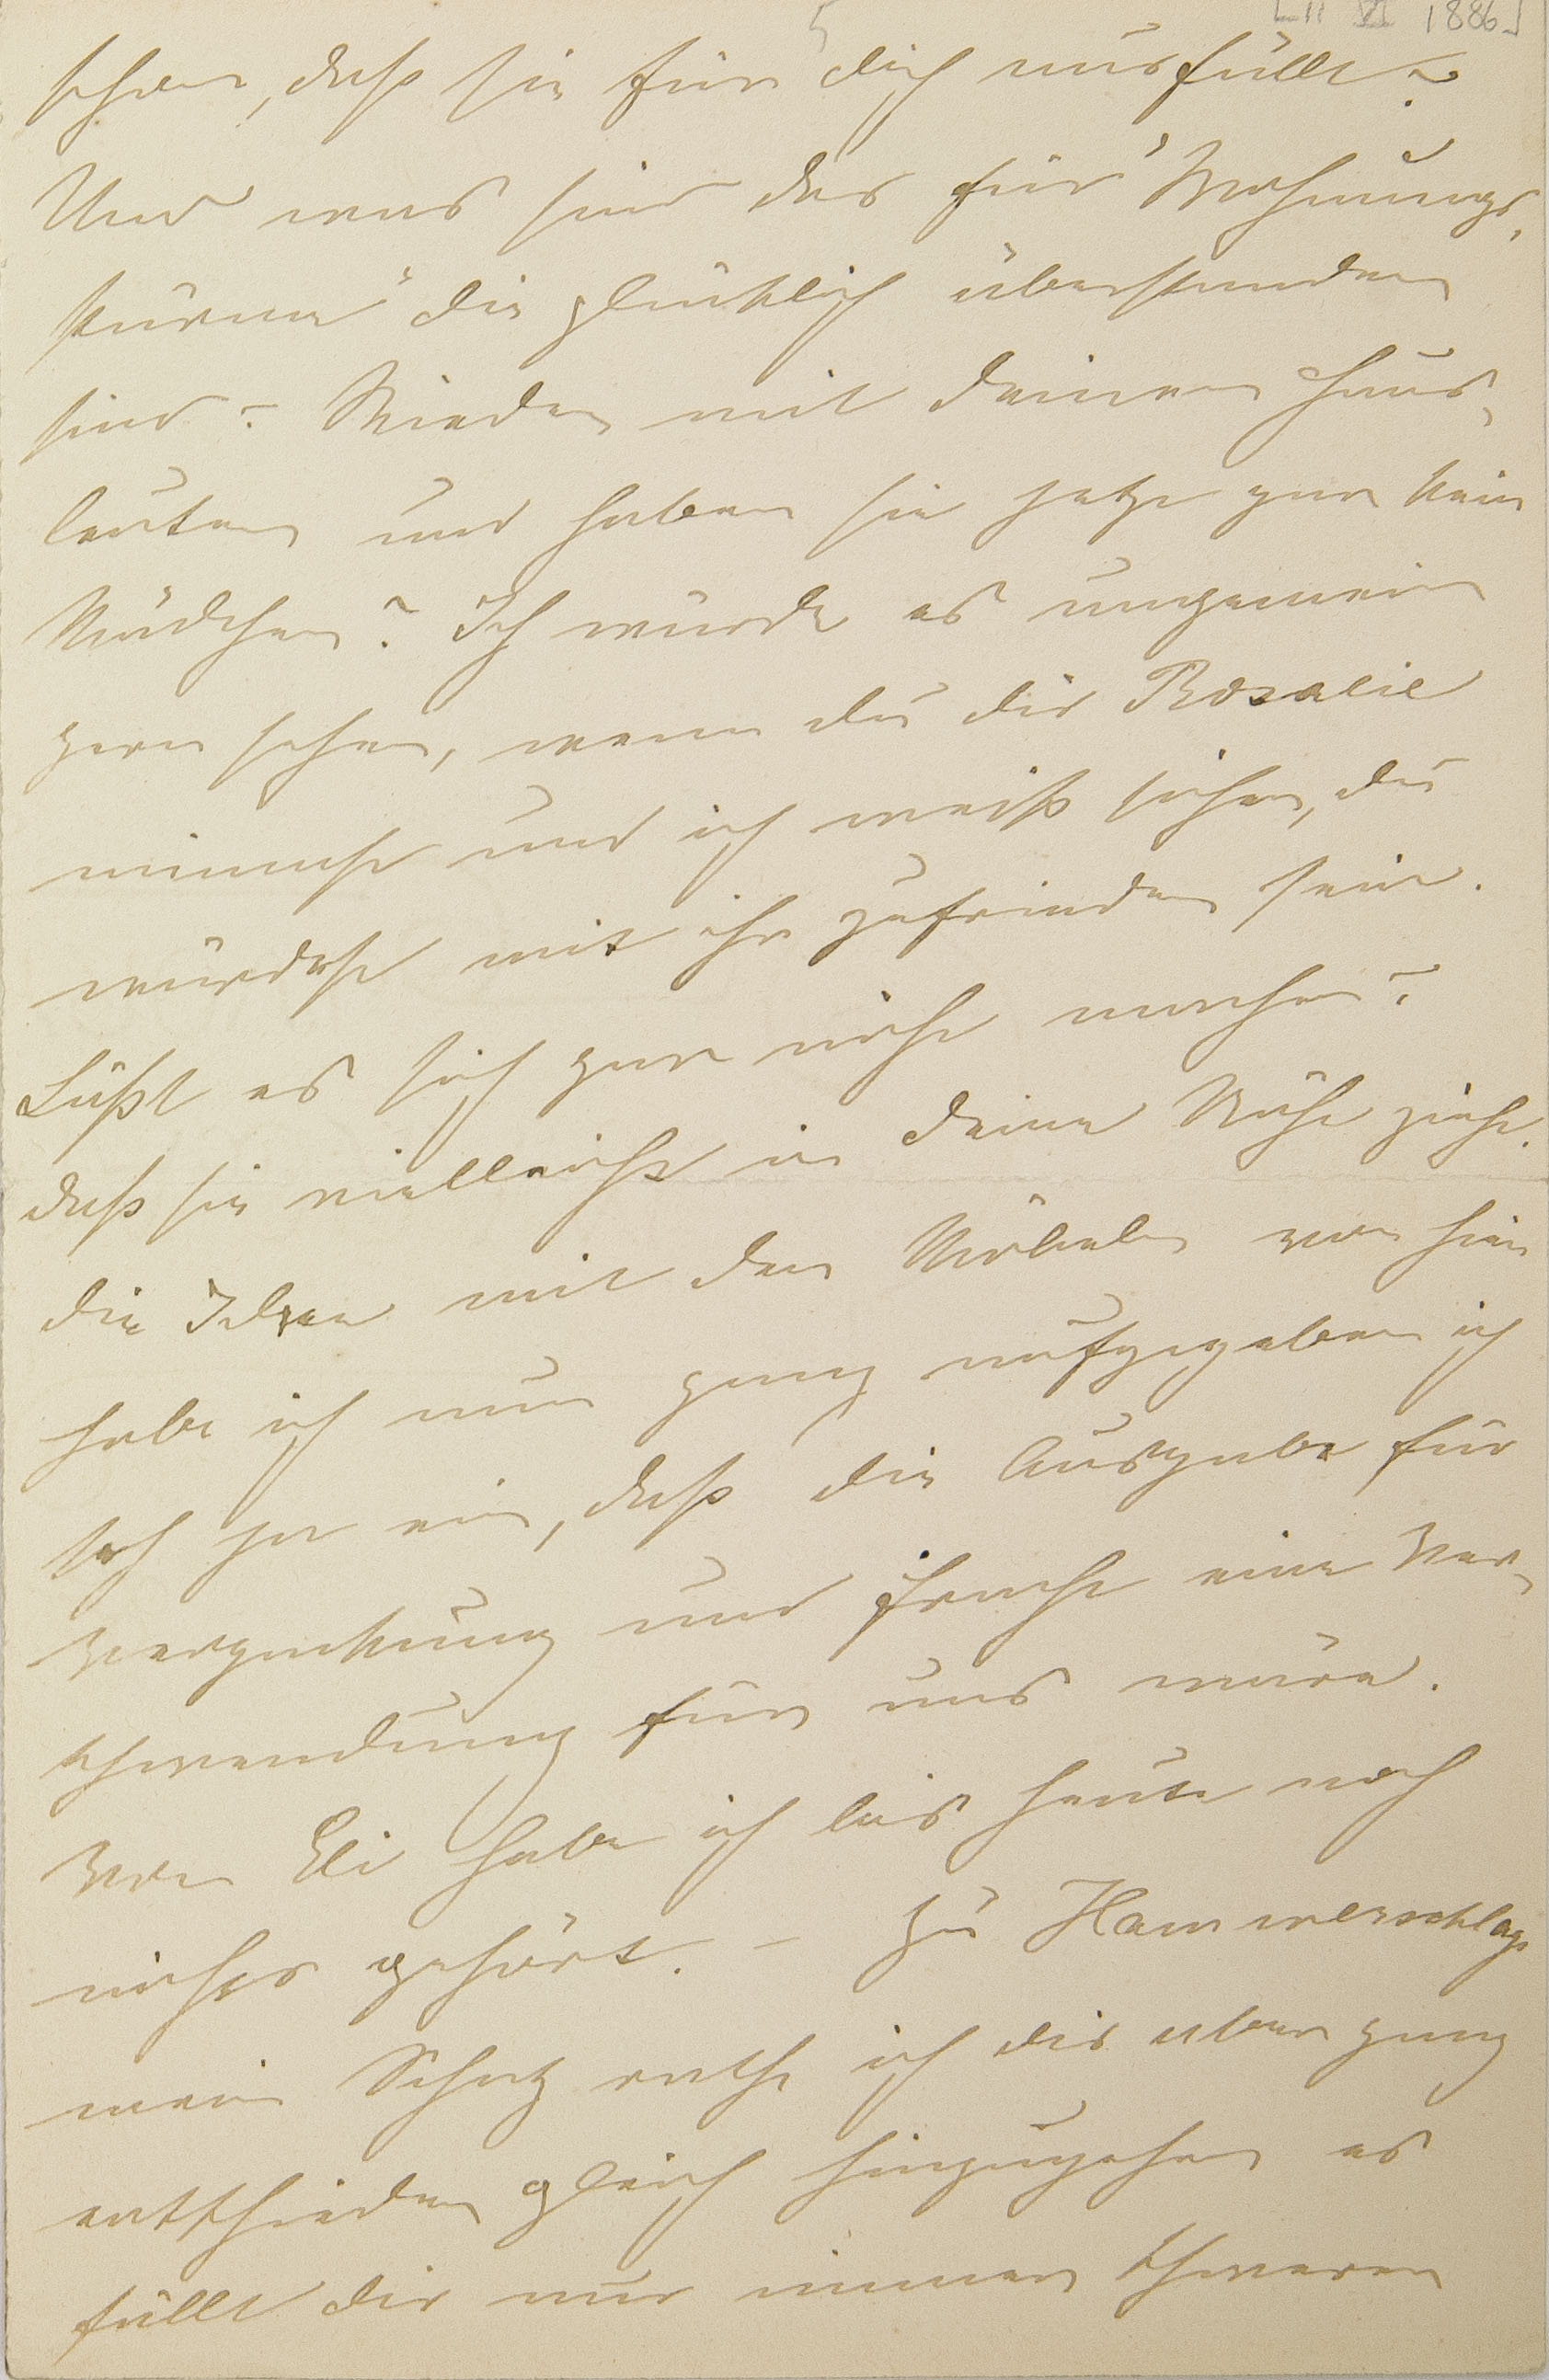 5 [11 VI 1886]
sehen, daß sie für dich ausfüllt?
Und was sind das für "Wohnungs-
stürme" die glücklich überstanden
sind? Wieder mit deinen Haus-
leuten und haben sie jetzt gar kein
Mädchen? Ich würde es ungemein
gern sehen, wenn du dir Rosalie
nimmst und ich weiß sicher, du
würdest mit ihr zufrieden sein.
Läßt es sich gar nicht machen?
daß sie vielleicht in deine Nähe zieht.
die Idee mit den Möbeln von hier
habe ich nun ganz aufgegeben ich
seh ja ein, daß die Ausgabe für
Verpackung und Fracht eine Ver-
schwendung für uns wäre.
Von Eli habe ich bis heute noch
nichts gehört. – Zu Hammerschlags
mein Schatz rathe ich dir aber ganz
entschieden gleich hinzugehen es
fällt dir nur immer schwerer